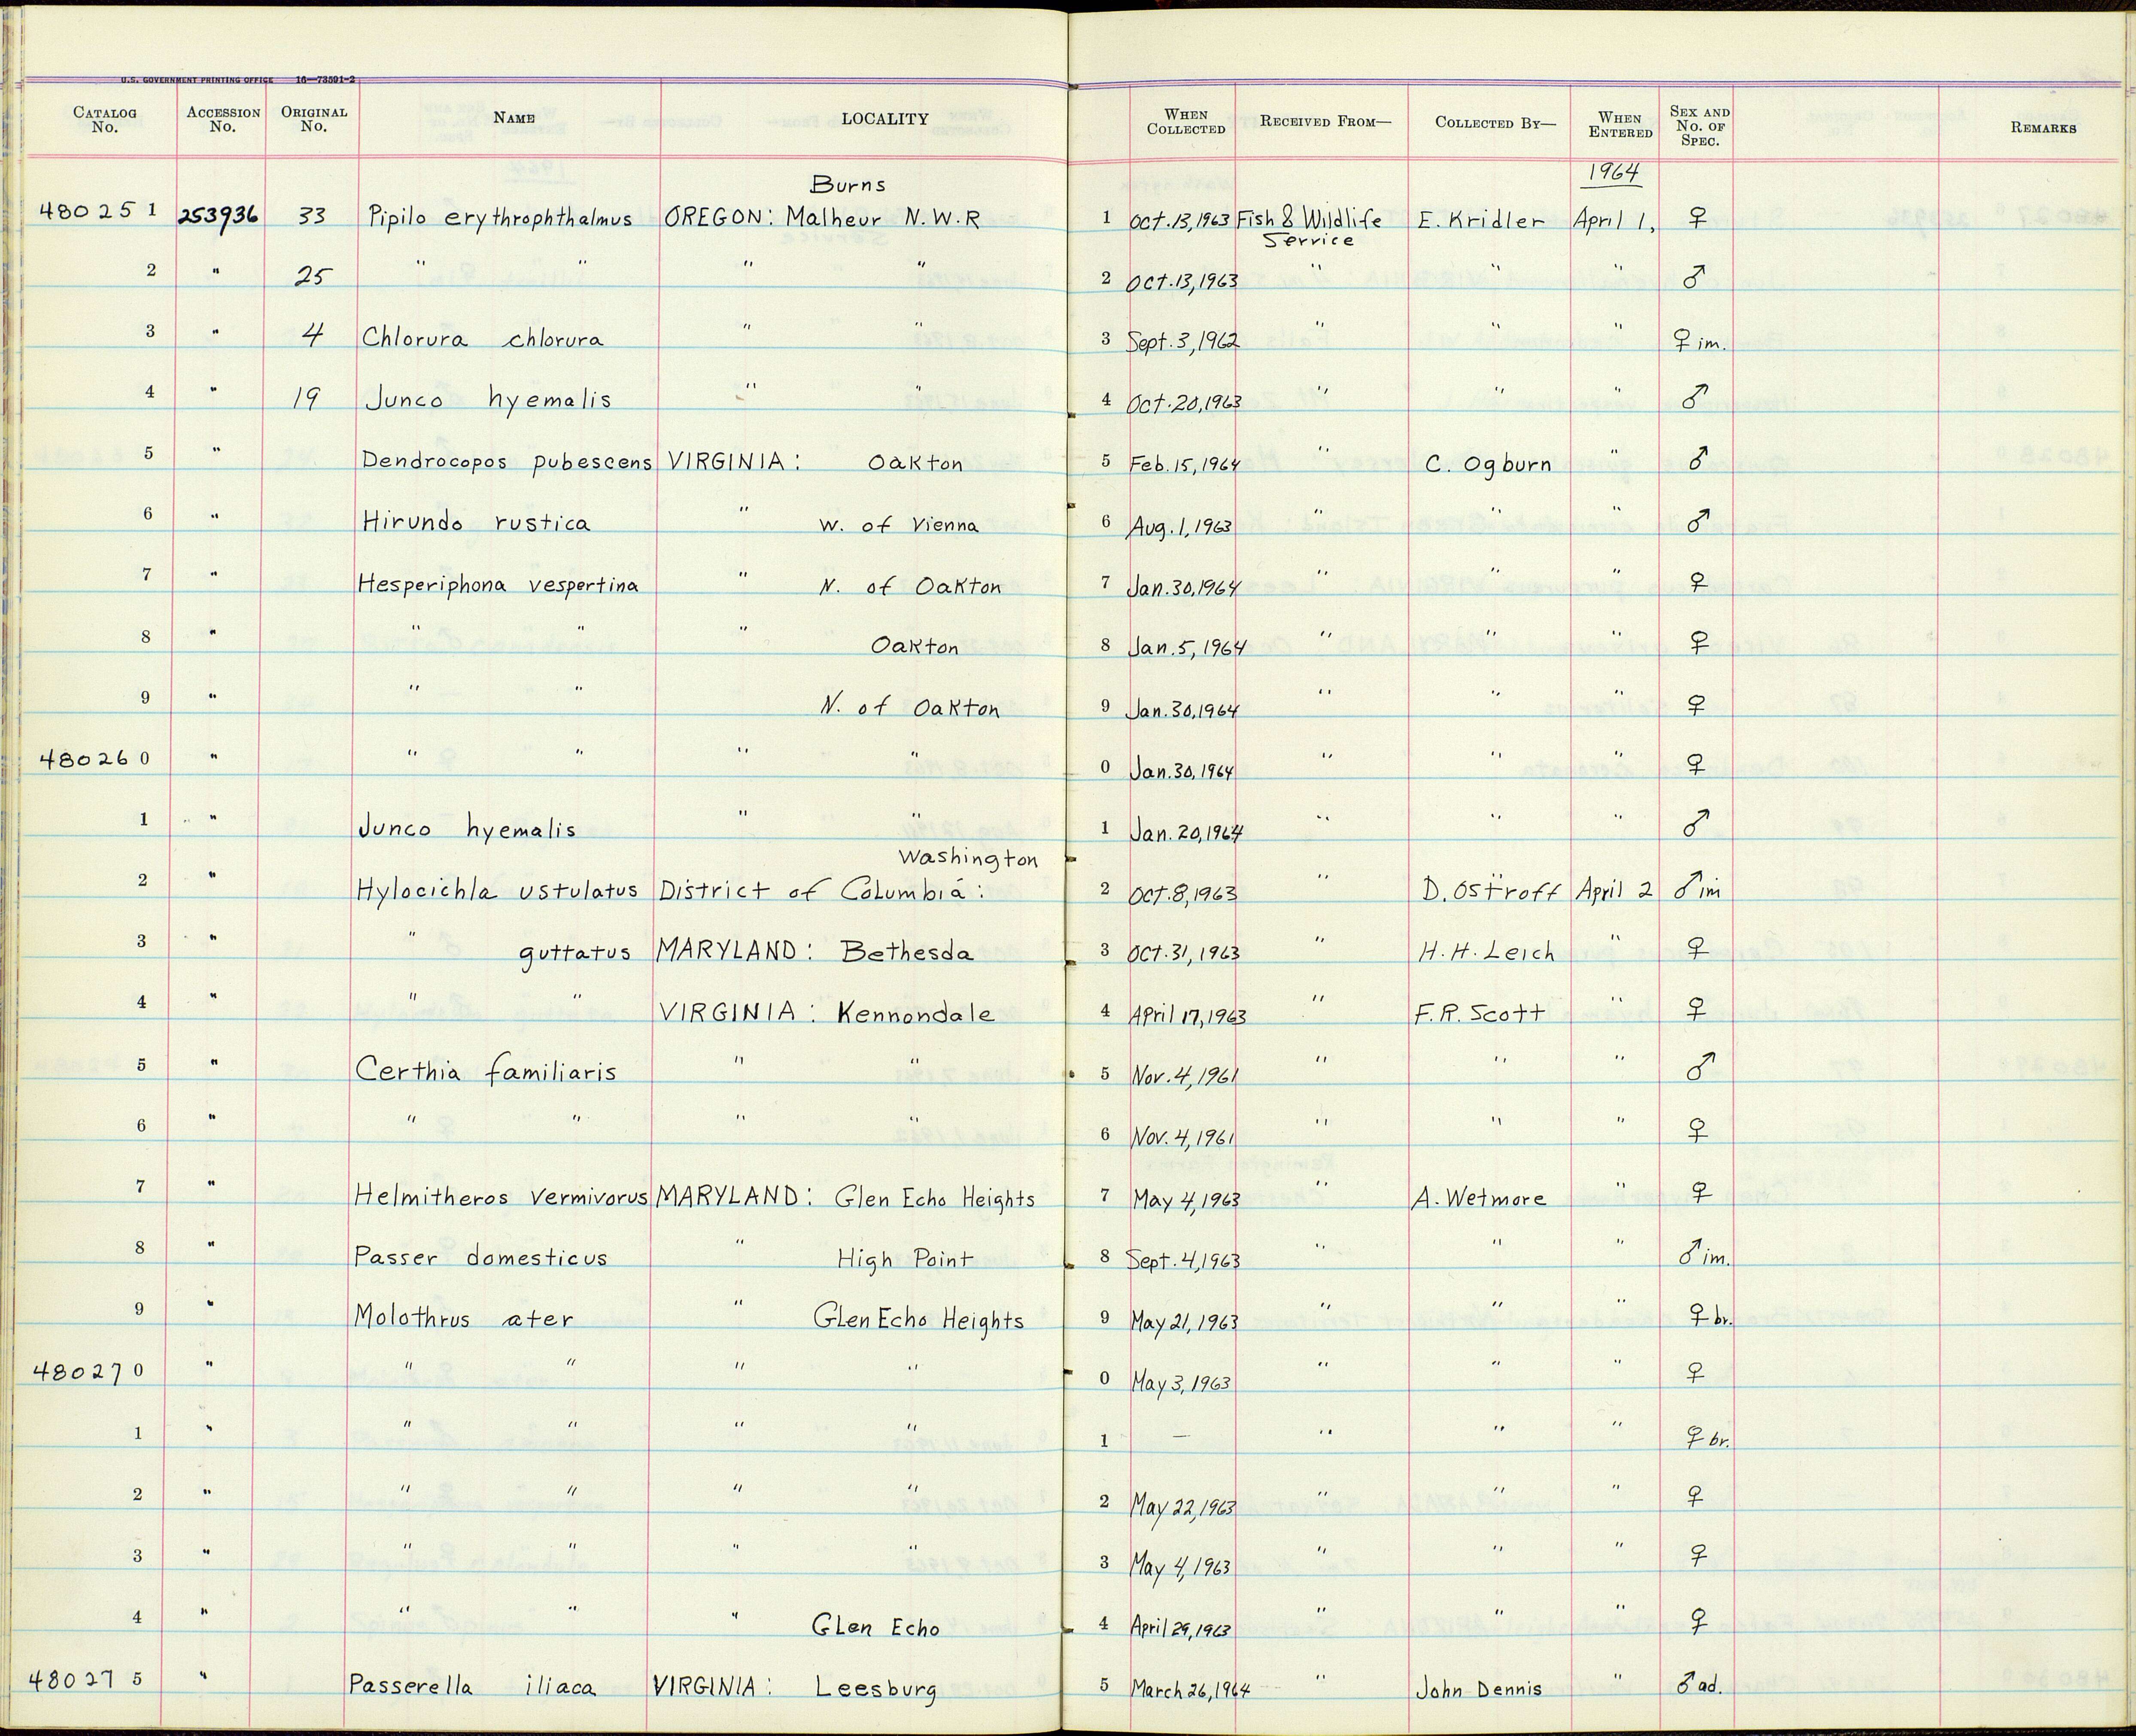 U.S. GOVERNMENT PRINTING OFFICE 16—73501-2
CATALOG No. ACCESSION No. ORIGINAL No. NAME LOCALITY WHEN COLLECTED RECEIVED FROM— COLLECTED BY— WHEN ENTERED SEX AND No. OF SPEC. REMARKS
Burns 1964
480251 253936 33 Pipilo erythrophthalmus OREGON: Malheur N.W.R 1 Oct.13,1963 Fish & Wildlife Service E. Kridler April 1, ♀
2 " 25 " " " " 2 Oct.13,1963 " " " ♂
3 " 4 Chlorura chlorura " " 3 Sept.3,1962 " " " ♀ im.
4 " 19 Junco hyemalis " " 4 Oct.20,1963 " " " ♂
5 " Dendrocopos pubescens VIRGINIA: Oakton 5 Feb.15,1964 " C. Ogburn " ♂
6 " Hirundo rustica " W. of Vienna 6 Aug.1,1963 " " " ♂
7 " Hesperiphona vespertina " N. of Oakton 7 Jan.30,1964 " " " ♀
8 " " " " Oakton 8 Jan.5,1964 " " " ♀
9 " " " N. of Oakton 9 Jan.30,1964 " " " ♀
480260 " " " " " 0 Jan.30,1964 " " " ♀
1 " Junco hyemalis " " 1 Jan.20,1964 " " " ♂
Washington
2 " Hylocichla ustulatus District of Columbia: 2 Oct.8,1963 " D. Ostroff April 2 ♂ im
3 " " guttatus MARYLAND: Bethesda 3 Oct.31,1963 " H.H. Leich " ♀
4 " " " VIRGINIA: Kennondale 4 April 17,1963 " F.R. Scott " ♀
5 " Certhia familiaris " " 5 Nov.4,1961 " " " ♂
6 " " " " " 6 Nov.4,1961 " " " ♀
7 " Helmitheros vermivorus MARYLAND: Glen Echo Heights 7 May 4,1963 " A. Wetmore " ♀
8 " Passer domesticus " High Point 8 Sept.4,1963 " " " ♂ im.
9 " Molothrus ater " Glen Echo Heights 9 May 21,1963 " " " ♀ br.
480270 " " " " " 0 May 3,1963 " " " ♀
1 " " " " " 1 — " " " ♀ br.
2 " " " " " 2 May 22,1963 " " " ♀
3 " " " " " 3 May 4,1963 " " " ♀
4 " " " " Glen Echo 4 April 29,1963 " " " ♀
480275 " Passerella iliaca VIRGINIA: Leesburg 5 March 26,1964 " John Dennis " ♂ ad.